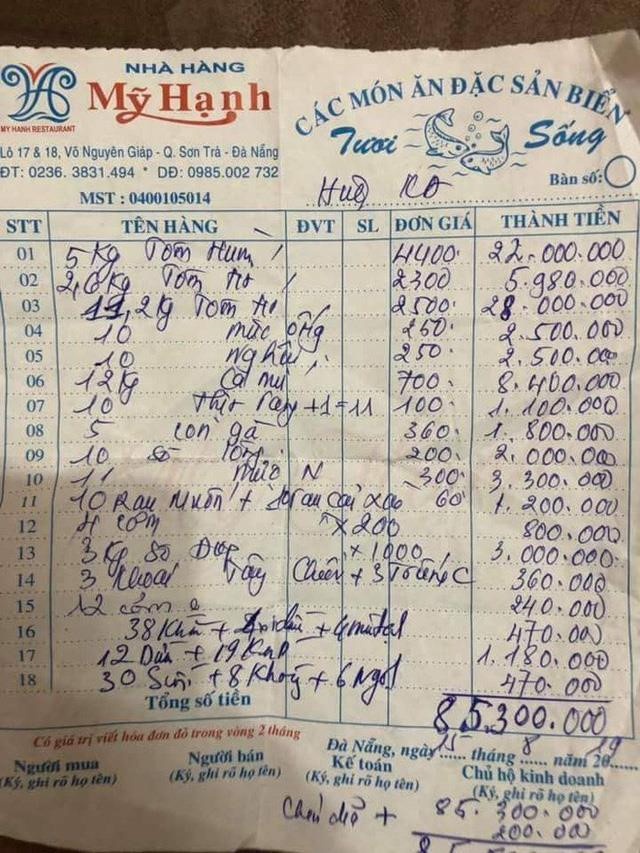 NHÀ HÀNG
Mỹ Hạnh
MY HANH RESTAURANT
CÁC MÓN ĂN ĐẶC SẢN BIỂN
Tươi Sống
Lô 17 & 18, Võ Nguyên Giáp - Q. Sơn Trà - Đà Nẵng
ĐT: 0236. 3831.494 * DĐ: 0985.002 732
Bàn số:
MST : 0400105014
STT TÊN HÀNG ĐVT SL ĐƠN GIÁ THÀNH TIỀN
01 5 Kg Tôm Hùm 4400 22.000.000
02 2,6 Kg Tôm 2300 5.980.000
03 2 Kg Tôm 2500 28.000.000
04 10 mực 250 2.500.000
05 10 Nghêu 250 2.500.000
06 12 Kg Cá mú 700 8.400.000
07 10 +1=11 100 1.100.000
08 5 con gà 360 1.800.000
09 10 200 2.000.000
10 11 mực N 300 3.300.000
11 10 Rau Muốn + 10 rau cải xào 60 1.200.000
12 4 cơm x 200 800.000
13 3 Kg Sò x 1000 3.000.000
14 3 Khoai Tây Chiên + 3 Trứng C 360.000
15 12 cơm 240.000
16 38 Khăn + 470.000
17 12 + 19 1.180.000
18 30 Suối + 8 + 6 Ngọt 470.000
Tổng số tiền 85.300.000
Có giá trị viết hóa đơn đỏ trong vòng 2 tháng
Đà Nẵng, ngày 15 tháng 8 năm 2019
Người mua Người bán Kế toán Chủ hộ kinh doanh
(Ký, ghi rõ họ tên) (Ký, ghi rõ họ tên) (Ký, ghi rõ họ tên) (Ký, ghi rõ họ tên)
85.300.000
+ 200.000